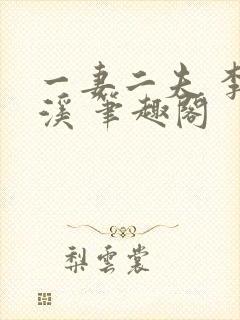 一妻二夫 李
溪 笔趣阁
梨雲裳